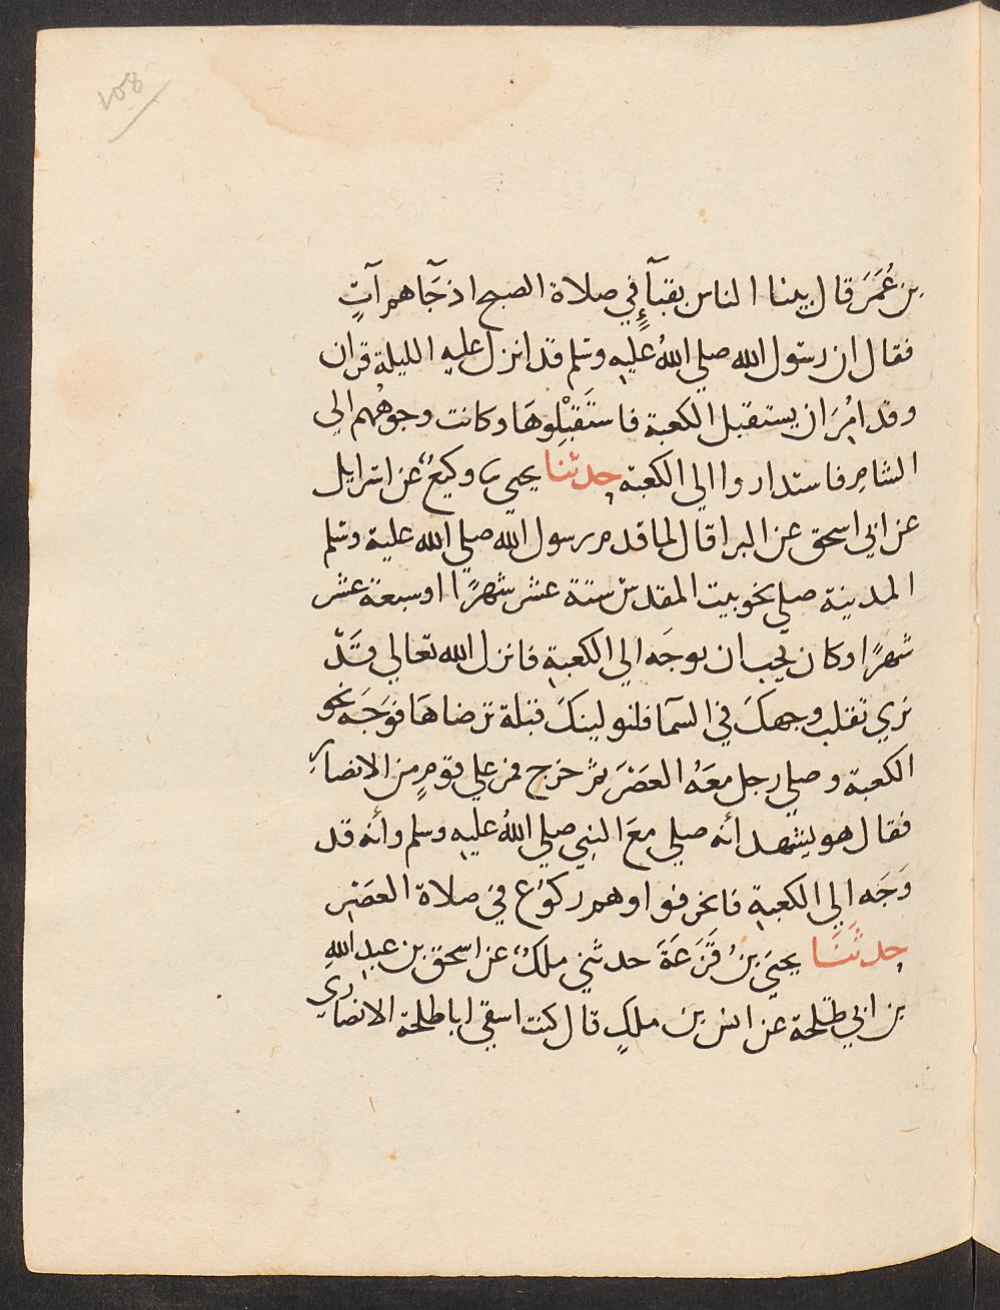 108
بن عُمَرَ قال بينا الناس بقبآءٍ في صلاة الصبح اذ جَآهم آتٍ
فقال ان رسول الله صلي اللهُ عليه وسلم قد انزل عليه الليلة قران
وقد امُِرَ ان يستقبل الكعبة فاستَقبِْلوهَا وكانت وجوهُهم الي
الشام فاستداروا الي الكعبة حدثنا يحيى نا وكيعُ عن اسرايل
عن ابي اسحق عن البرا قال لما قدم رسول الله صلي الله عليه وسلم
المدينة صلي نحو بيت المقدس ستة عشر شهرًا او سبعة عشر
شهرًا وكان يحب ان يوجَه الي الكعبة فانزل الله تعالي قَدْ
نري تقلب وجهكَ في السمآ فلنولينكَ قبلة ترضاهَا فوَجَه نحو
الكعبة وصلي رجل معَهُ العصَْرَ ثم خرج فمر علي قومٍ من الانصار
فقال هو يشهد أنه صلي معَ النبي صلي اللهُ عليه وسلم وأنه قد
وَجَه الي الكعبة فانحرفوا وهم ركوُع في صلاة العصَْرِ
حدثَنَا يحيَي بنُ قَزَعَةَ حدثني ملكُ عن اسحق بن عبد الله
بن ابي طَلحة عن انس بن ملكٍ قال كنت اسقي ابا طلحة الانصاري